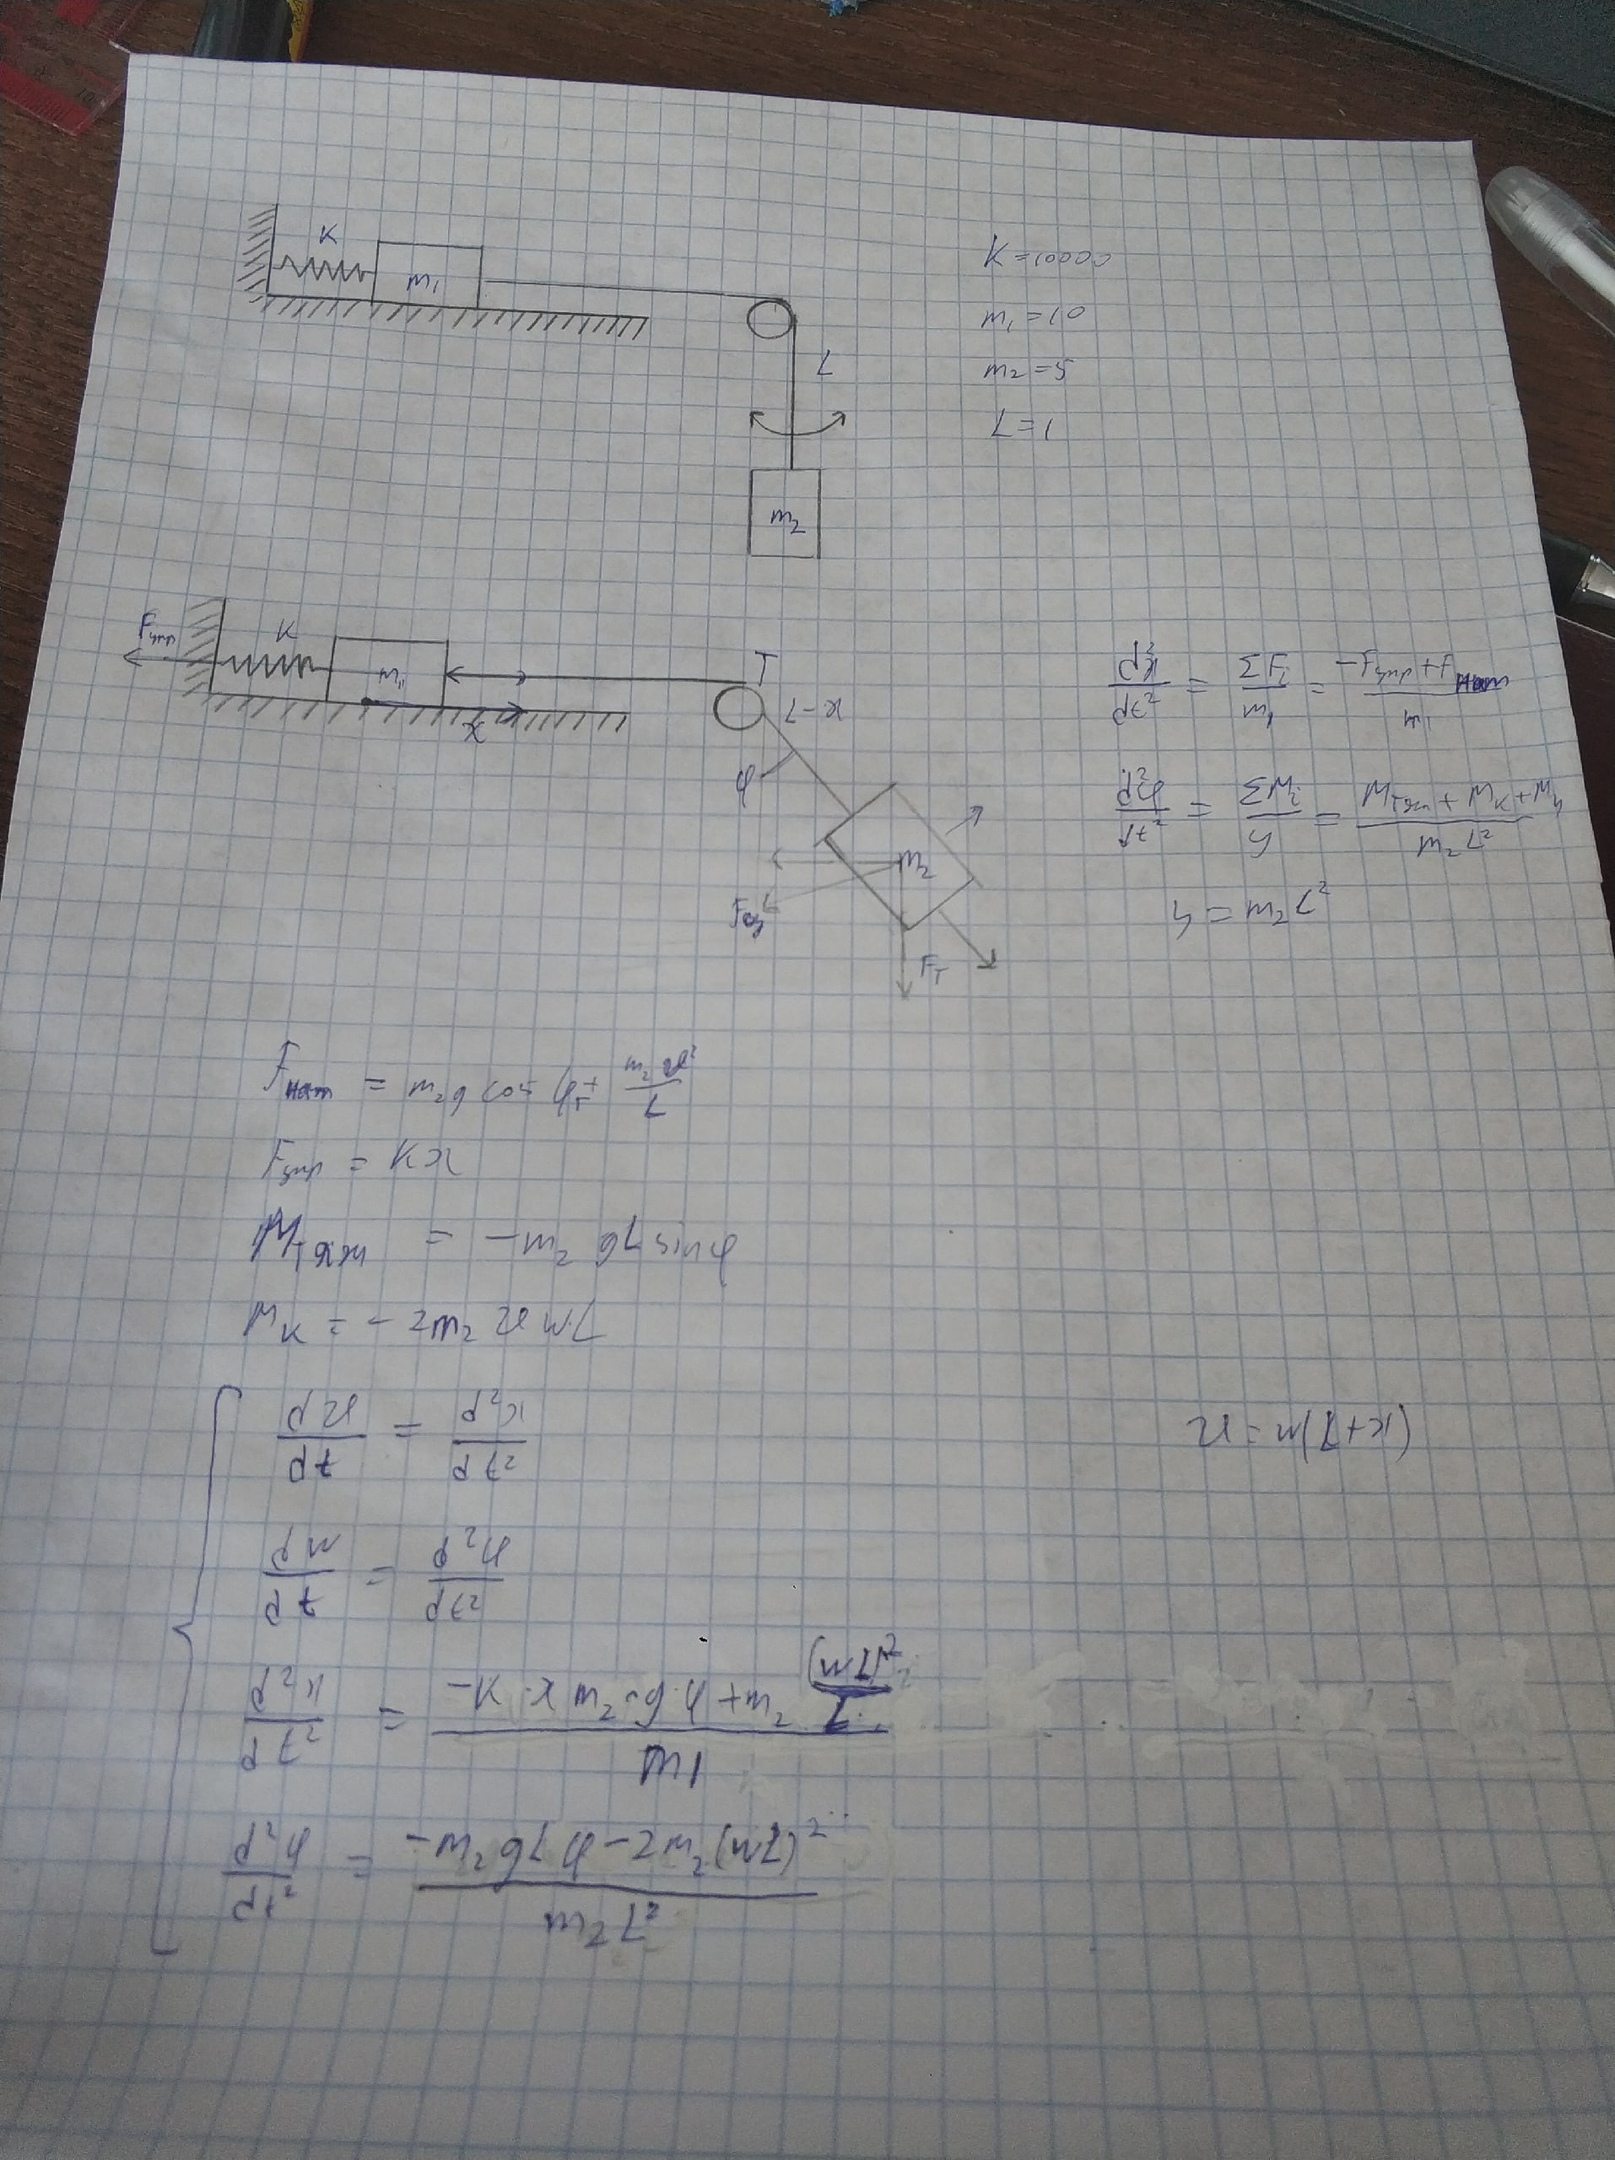 K
m₁
K = 10000
m₁ = 10
m₂ = 5
L = 1
L
m₂
Fупр
K
m₁
x
T
L-x
φ
m₂
Fт
d²x/dt² = ΣFᵢ/m₁ = (-Fупр + Fнат)/m₁
d²φ/dt² = ΣMᵢ/y = (Mтяж + Mк + My)/(m₂L²)
y = m₂L²
Fнат = m₂g cos φ + m₂v²/L
Fупр = Kx
Mтяж = -m₂gL sin φ
Mк = -2m₂vwL
dv/dt = d²x/dt²
v = w(L+x)
dw/dt = d²φ/dt²
d²x/dt² = (-K·x m₂·g·φ + m₂ (wL)²/L)/m1
d²φ/dt² = (-m₂gLφ - 2m₂(wL)²)/(m₂L²)